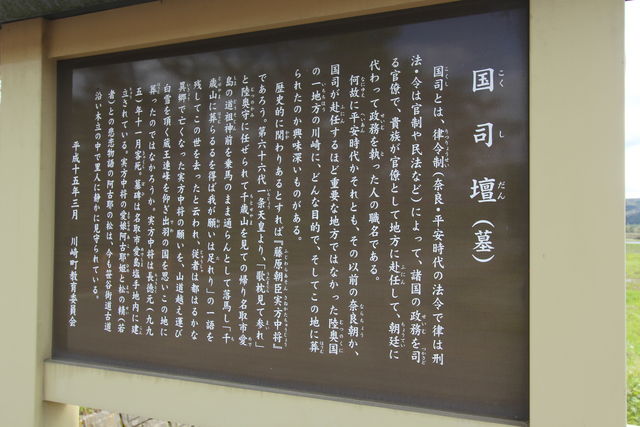 国司壇（墓）
国司とは、律令制（奈良・平安時代の法令で律は刑
法・令は官制や民法など）によって、諸国の政務を司
る官僚で、貴族が官僚として地方に赴任して、朝廷に
代わって政務を執った人の職名である。
何故に平安時代かそれとも、その以前の奈良朝か、
国司が赴任するほど重要な地方ではなかった陸奥国
の一地方の川崎に、どんな目的で、そしてこの地に葬
られたのか興味深いものがある。
歴史的に関わりあるとすれば『藤原朝臣実方中将』
であろう。第六十六代一条天皇より「歌枕見て参れ」
と陸奥守に任ぜられて千歳山を見ての帰り名取市愛
島の道祖神前を乗馬のまま通らんとして落馬し「千
歳山に葬らるるを得ば我が願いは足れり」の一語を
残してこの世を去ったと云われ、従者は都はるかな
異郷で亡くなった実方中将の願いを、山道越え運び
白雪を頂く蔵王連峰を仰ぎ出羽の国を思いこの地に
葬ったのではなかろうか。実方中将は長徳元（九九
五）年十一月客死。墓碑は名取市愛島塩手地内に建
立されている。実方中将の愛娘阿古耶姫と松の精（若
者）との悲恋物語の阿古耶の松は、今も笹谷街道古道
沿い木立の中で里人に静かに見守られている。
平成十五年三月　川崎町教育委員会